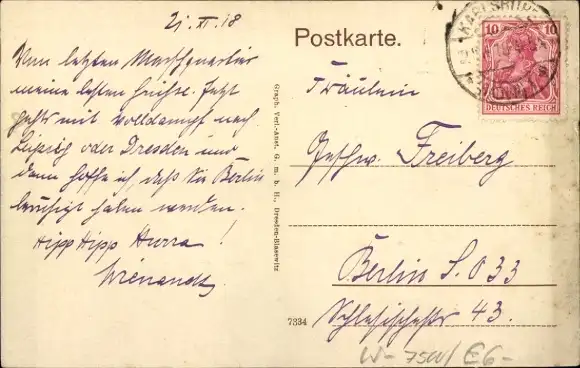 21. XI. 18
Vom letzten Marschquartier
meine besten Grüsse. Jetzt
gehts mit Volldampf nach
Leipzig oder Dresden und
dann hoffe ich, dass Sie Berlin
beruhigt haben werden.
Hipp Hipp Hurra!
Postkarte.
KARLSRUHE
10 10
DEUTSCHES REICH
Fräulein
Geschw. Freiberg
Berlin S. O 33
Schlesischestr 43.
Graph. Verl.-Anst. G. m. b. H., Dresden-Blasewitz
7334
W- 750/ E6-